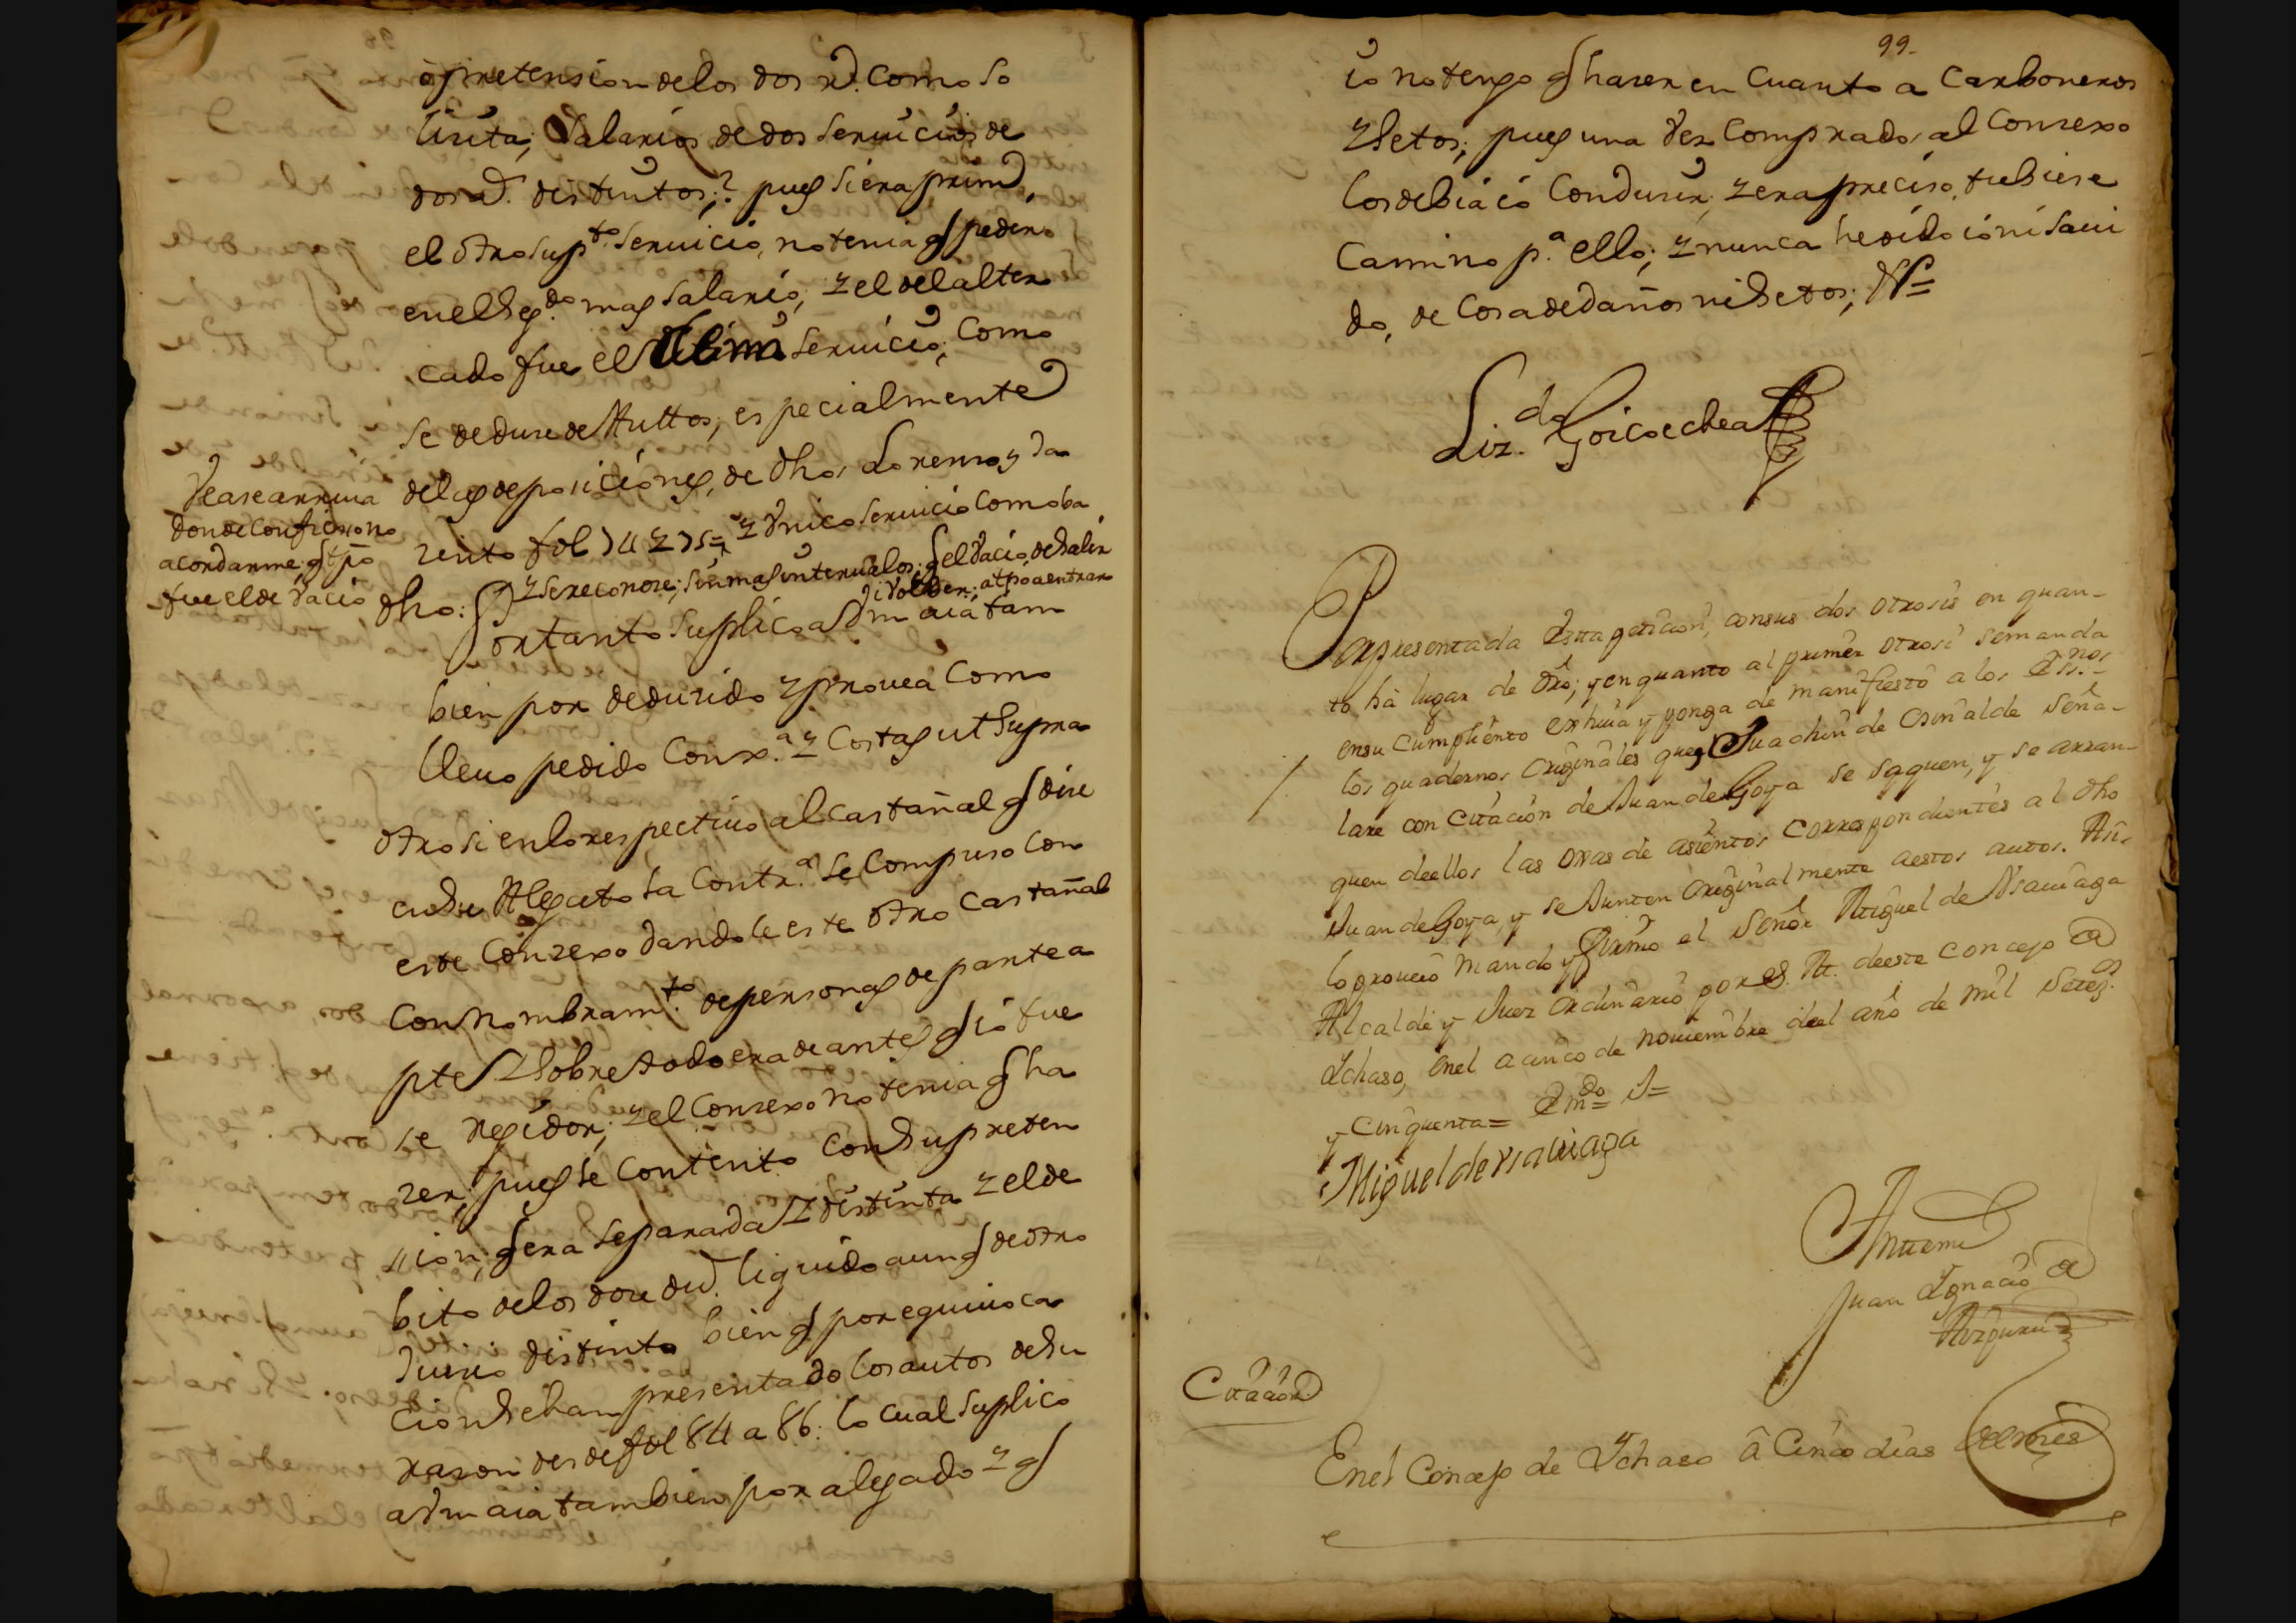 pretension delos dos rs. como so
licita; Salarios de dos seruicios de
dos as. distintos;? pues si era prim
el otro sup.to seruicio, no tenia q pedir
en el seg.do mas salario; z el del alter
cado fue el vltimo seruicio; como
se deduze de Auttos, especialmente
delas deposiciones, de dhos Lorenzo y Ja
zinto fol 74 z 75= z vnico seruicio como ba
dho: z se reconoze; sin mas interualos; q el vacio de salir
i voluer; a tpo a entrar
Vease arriua
donde confieso no
acordarme q tpo
fue el de vacio
Portanto suplico a Vm aia tam
bien por deduzido z prouea como
lleuo pedido con xa. z costas ut supra
otro si en lo respectiuo al castañal q dize
en su Alegato la Contr.a se compuso con
este Conzexo dandole este otro castañal
con nombram.to de personas de parte a
pte z sobre todo era de antes q io fue
se regidor; z el Conzexo no tenia q ha
zer; pues se contento con su preten
sion; q era separada z distinta z el de
bito delos doze ds. liquido aunq de otro
Juizio distinto bien q por equiuoca
cion se han presentado los autos de su
razon desde fol 84 a 86: lo cual suplico
a Vm aia tambien por alegado z q
99.
io no tengo q hazer en cuanto a carboneros
z setos; pues una vez comprado, al Conzexo
los debia io conduzir; z era preciso, tubiese
camino p.a ello; z nunca he oido io ni saui
do, de cosa de daños ni setos; Vt=
Liz.do Goicoechea
Por presentada Estta peticion, con sus dos otrosis en quan-
to hà lugar de dro; y en quanto al primer otrosi se manda
en su cumplimiento exhiua y ponga de manifiesto a los Essnos.
los quadernos Originales que Juachin de Osinalde seña-
lare con citacion de Juan de Goya se saquen, y se arran-
quen de ellos las oxas de asientos correspondientes al dho
Juan de Goya, y se Junten Originalmente a estos autos. Asi
lo proueio mando y firmo el Señor Miguel de Ysauiaga
Alcalde y Juez Ordinario por S. M. de este concejo de
Ychaso, en el a cinco de nouiembre de el año de mil setez.s
y cinquenta= Emdo. S=
Miguel de ysauiaga
Antemi
Juan Ygnacio de
Aizpuru
Citacion
En el Concejo de Ychaso â Cinco dias del mes